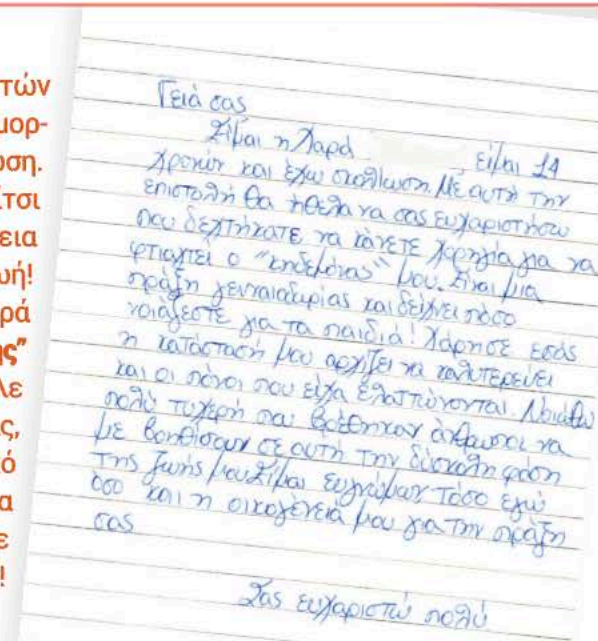 τών
μορ-
ωση.
ίτσι
εια
ωή!
ρά
ης"
λε
ς,
ό
α
ε
!
Γειά σας
Είμαι η Χαρά , είμαι 14
χρονών και έχω σκολίωση. Με αυτή την
επιστολή θα ήθελα να σας ευχαριστήσω
που δεχτήκατε να κάνετε χορηγία για να
φτιαχτεί ο "κηδεμόνας" μου. Είναι μια
πράξη γενναιοδωρίας και δείχνει πόσο
νοιάζεστε για τα παιδιά! Χάρησε εσάς
η κατάστασή μου αρχίζει να καλυτερεύει
και οι πόνοι που είχα ελαττώνονται. Νοιάθω
πολύ τυχερή που βρέθηκαν άνθωποι να
με βοηθίσουν σε αυτή την δύσκολη φάση
της ζωής μου. Είμαι ευγνώμων τόσο εγώ
όσο και η οικογένειά μου για την πράξη
σας
Σας ευχαριστώ πολύ